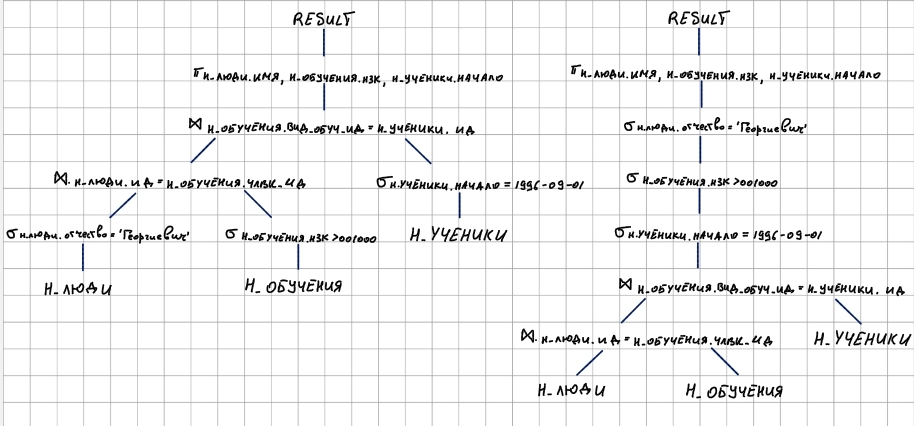 RESULT
π Н_ЛЮДИ.ИМЯ, Н_ОБУЧЕНИЯ.НЗК, Н_УЧЕНИКИ.НАЧАЛО
⋈ Н_ОБУЧЕНИЯ.ВИД_ОБУЧ_ИД = Н_УЧЕНИКИ.ИД
⋈ Н_ЛЮДИ.ИД = Н_ОБУЧЕНИЯ.ЧЛВК_ИД
σ Н_УЧЕНИКИ.НАЧАЛО = 1996-09-01
σ Н_ЛЮДИ.ОТЧЕСТВО = 'Георгиевич'
σ Н_ОБУЧЕНИЯ.НЗК > 001000
Н_УЧЕНИКИ
Н_ЛЮДИ
Н_ОБУЧЕНИЯ
RESULT
π Н_ЛЮДИ.ИМЯ, Н_ОБУЧЕНИЯ.НЗК, Н_УЧЕНИКИ.НАЧАЛО
σ Н_ЛЮДИ.ОТЧЕСТВО = 'Георгиевич'
σ Н_ОБУЧЕНИЯ.НЗК > 001000
σ Н_УЧЕНИКИ.НАЧАЛО = 1996-09-01
⋈ Н_ОБУЧЕНИЯ.ВИД_ОБУЧ_ИД = Н_УЧЕНИКИ.ИД
⋈ Н_ЛЮДИ.ИД = Н_ОБУЧЕНИЯ.ЧЛВК_ИД
Н_УЧЕНИКИ
Н_ЛЮДИ
Н_ОБУЧЕНИЯ